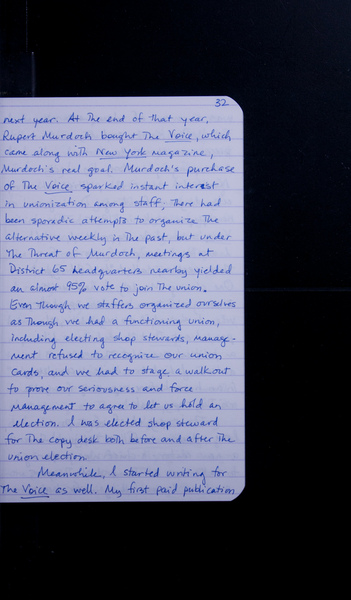 32
next year. At the end of that year,
Rupert Murdoch bought The Voice, which
came along with New York magazine,
Murdoch's real goal. Murdoch's purchase
of The Voice sparked instant interest
in unionization among staff, There had
been sporadic attempts to organize The
alternative weekly in The past, but under
The Threat of Murdoch, meetings at
District 65 headquarters nearby yielded
an almost 95% vote to join The union.
Even Though we staffers organized ourselves
as Though we had a functioning union,
including electing shop stewards, manage-
ment refused to recognize our union
cards, and we had to stage a walkout
to prove our seriousness and force
management to agree to let us hold an
election. I was elected shop steward
for The copy desk both before and after The
union election.
Meanwhile, I started writing for
The Voice as well. My first paid publication